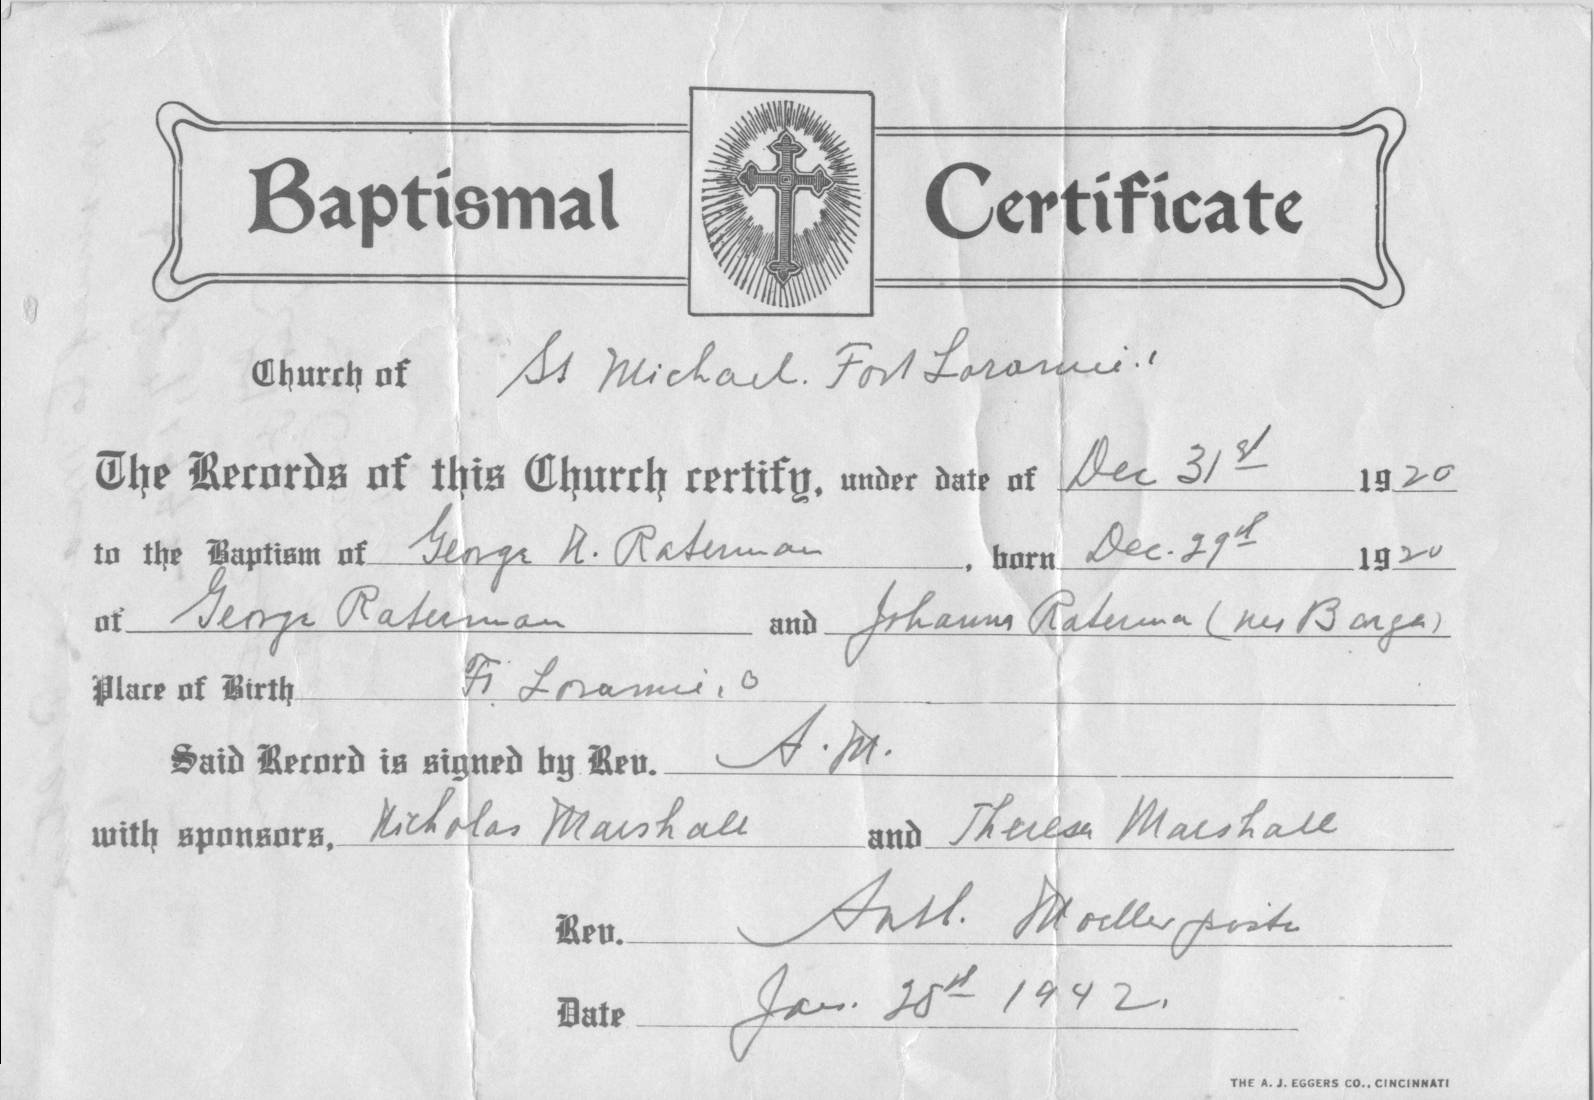 Baptismal Certificate
Church of St Michael. Fort Loramie.
The Records of this Church certify, under date of Dec 31st 1920
to the Baptism of George H. Raterman, born Dec. 29th 1920
of George Raterman and Johanna Raterman (nee Barga)
Place of Birth Ft. Loramie, O
Said Record is signed by Rev. A. M.
with sponsors, Nicholas Marshall and Theresa Marshall
Rev. Anth. Moeller
Date Jan. 28th 1942.
THE A. J. EGGERS CO., CINCINNATI